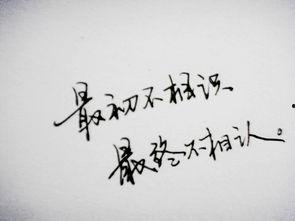 最初不相识
最终不相认。